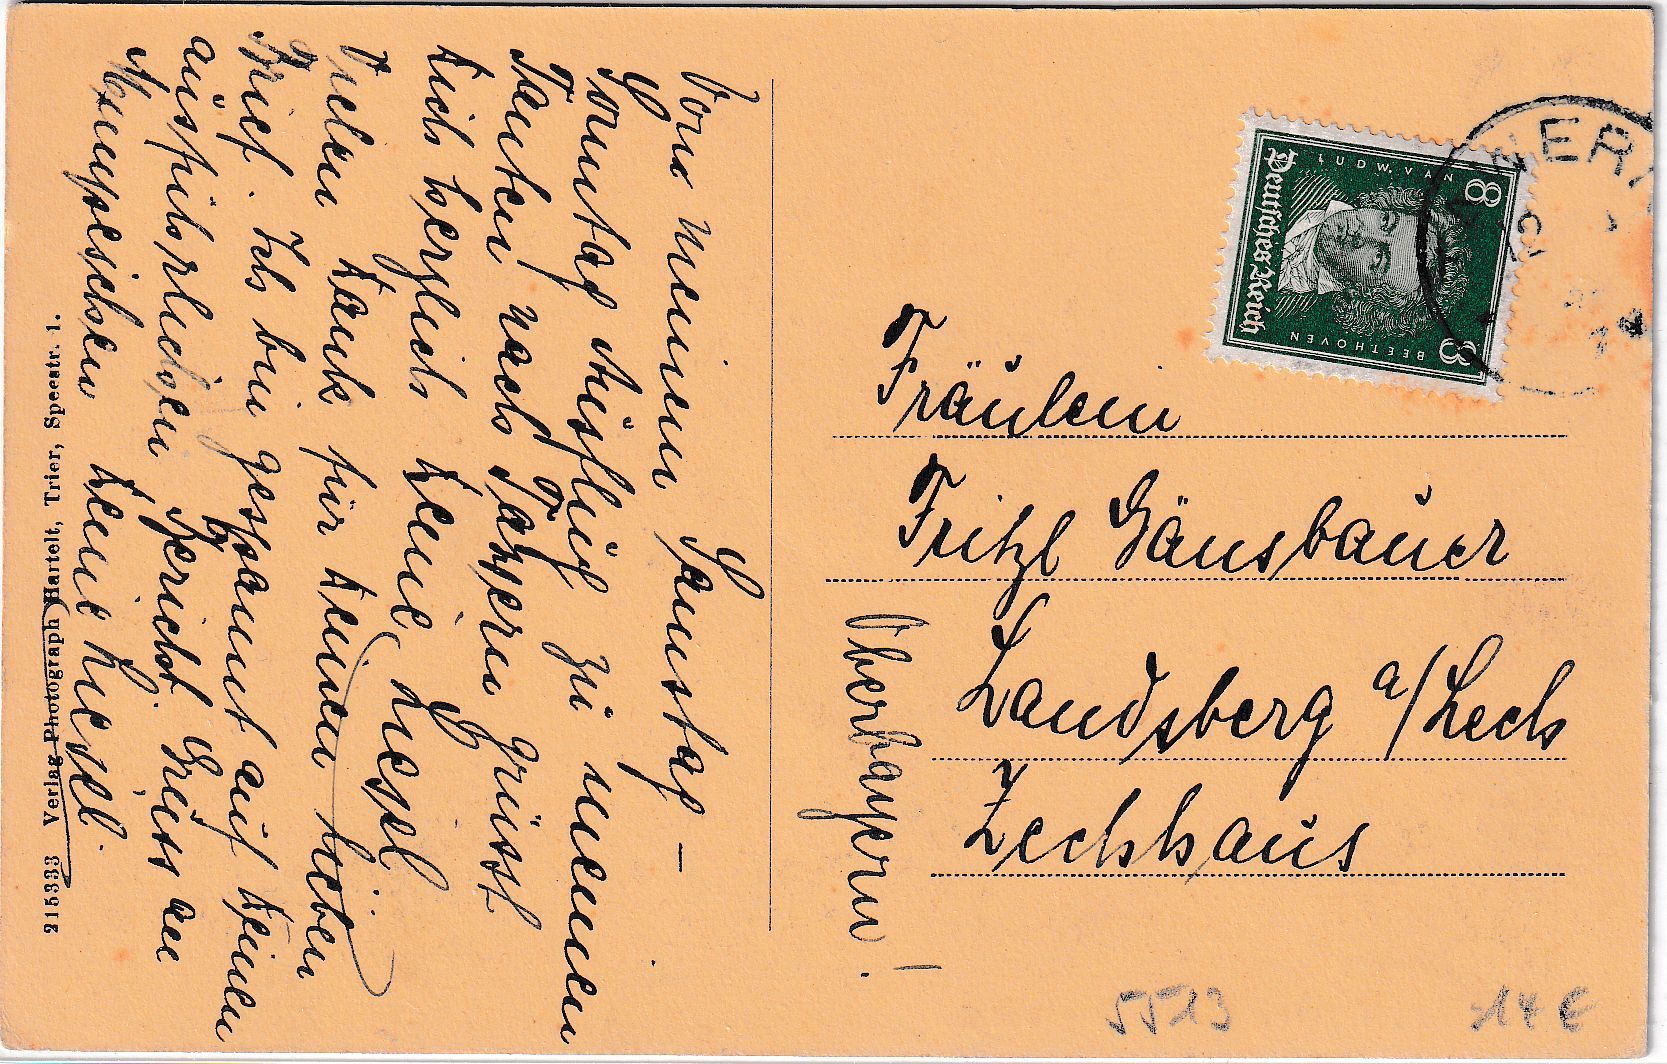 Von meinem Samstag –
Sonntag Ausflug zu meinen
Tanten nach Bayern grüsst
Dich herzlich Deine Liesel
Vielen Dank für Deinen lieben
Brief. Ich bin gespannt auf Deinen
ausführlichen Bericht. Gruss an
Deine Liesel.
215333 Verlag Photograph Hartelt, Trier, Speestr. 1.
LUDW. VAN
BEETHOVEN
8
8
Deutsches Reich
WER
Fräulein
Fritzl Gänsbauer
Landsberg a/Lech
Zechhaus
Oberbayern!
5513
14 €